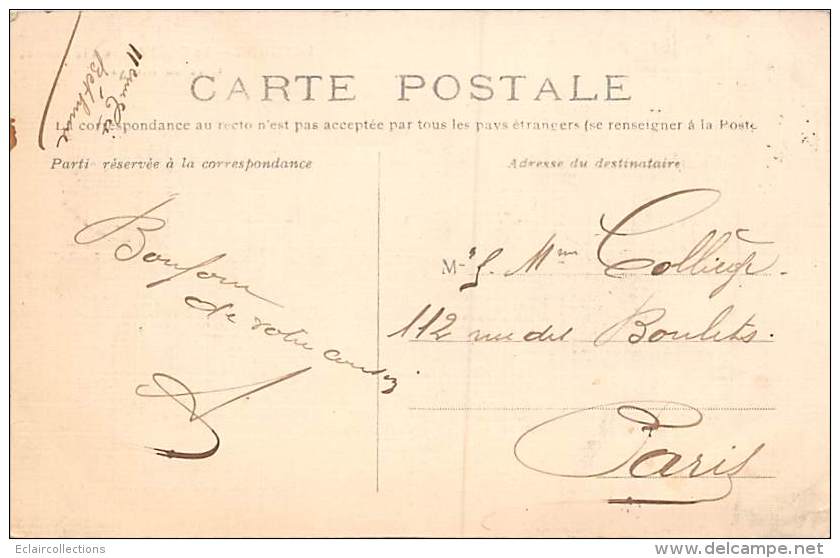 CARTE POSTALE
La correspondance au recto n'est pas acceptée par tous les pays étrangers (se renseigner à la Poste
Partie réservée à la correspondance
Adresse du destinataire
Bethune
Bonjour
de votre cousin
M
Mme
112 rue des Boulets.
Paris
Eclaircollections
delcampe.net